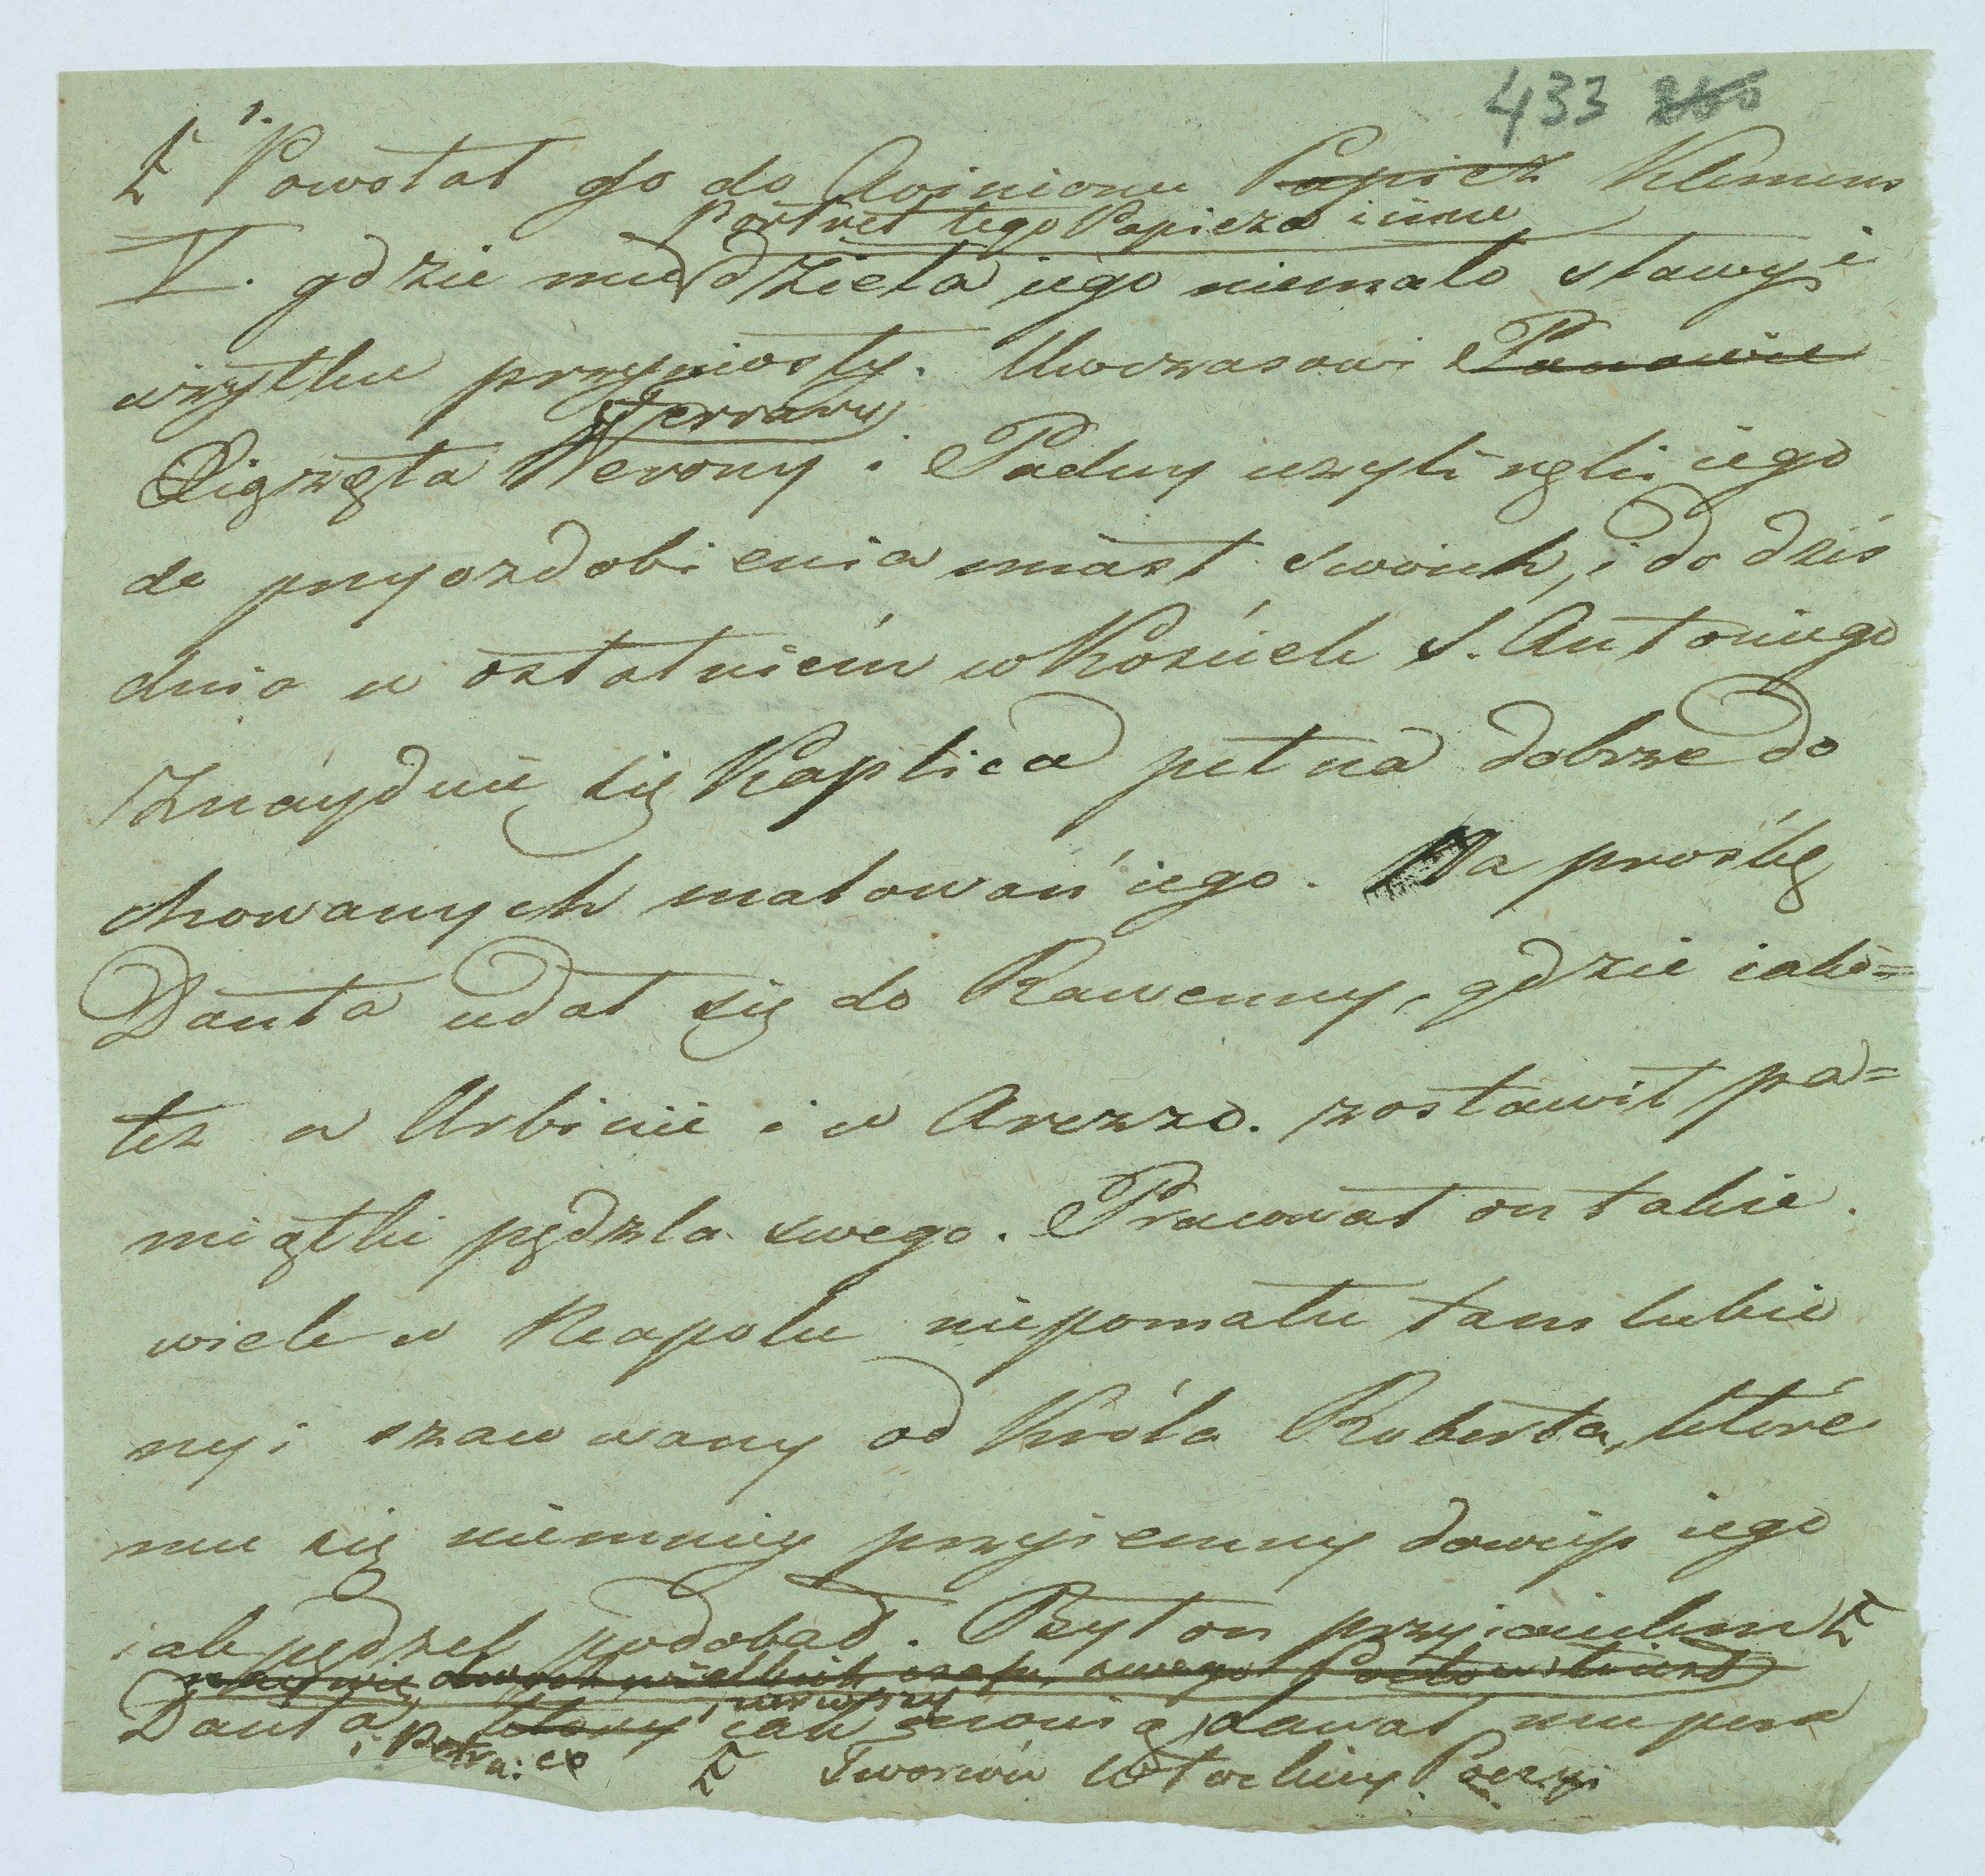 433 260
1.
Powołał go do Awinionu Papież Klemens
Portret tego Papieża i inne
V. gdzie mu dzieła iego niemało sławy i
zysku przyniosły. Uwczasowi Panowie
Ferrary
Xiążęta Werony i Paduy użyli ręki iego
do przyozdobienia miast swoich, i do dziś
dnia w ostatniém w Kościele S. Antoniego
znayduie się Kaplica pełna dobrze do
chowanych malowań iego. Na prośbę
Danta udał się do Rawenny, gdzie iako=
też w Urbinie i w Arezzo. zostawił pa=
miątki pędzla swego. Pracował on takie
wiele w Neapolu niepomału tam lubio
nyi szanowany od Króla Roberta, które
mu się niemniey przyiemny dowcip iego
iak pędzel podobał. Był on przyiacielem
dwoch wielkich swego
Danta, który iak mówią dawał mu
i Petrar: ce
Tworców Włoskiey Poezyi